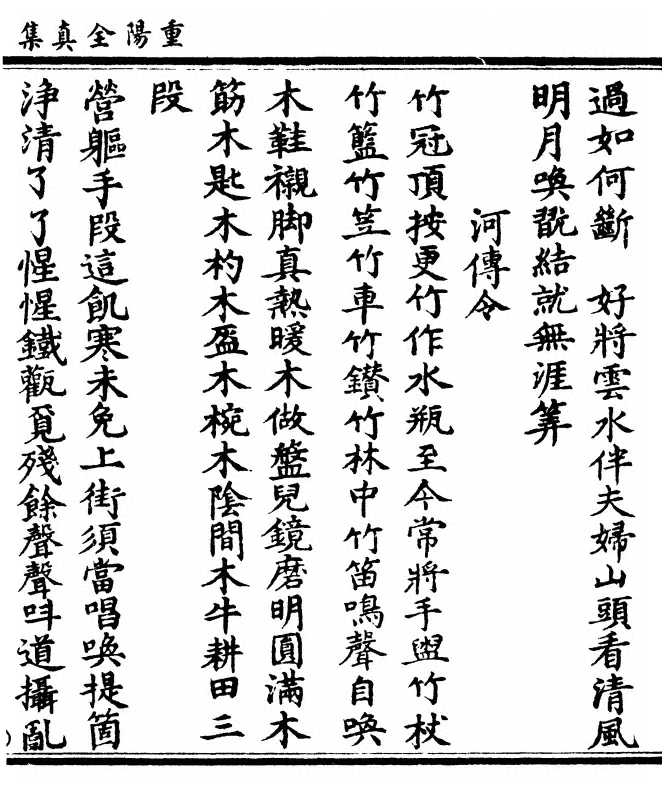 重陽全真集
過如何斷　好將雲水伴夫婦山頭看清風
明月喚翫結就無涯筭
河傳令
竹冠頂按更竹作水瓶至今常將手盥竹杖
竹籃竹笠竹車竹鑚竹林中竹笛鳴聲自喚
木鞋襯脚真熱暖木做盤兒鏡磨明圓滿木
筯木匙木杓木盔木椀木陰間木牛耕田三
段
營軀手段這飢寒未免上街須當唱喚提箇
淨清了了惺惺鐵觀覓殘餘聲聲呌道攝亂